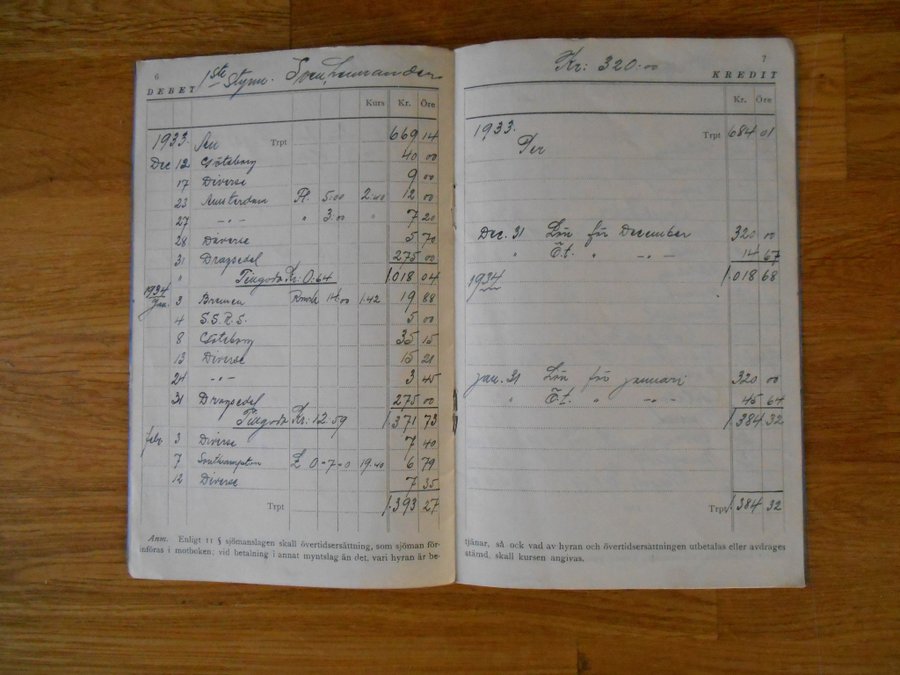 6
1ste Styrm. Sven
DEBET
Kurs Kr. Öre
1933. An Trpt 669 14
Dec 12 Göteborg 40 00
17 Diverse 9 00
23 Amsterdam Fl. 5.00 2.40 12 00
27 -"- " 3.00 " 7 20
28 Diverse 5 70
31 Dragsedel 275 00
" Tillgodo Kr. 0.64 1.018 04
1934
Jan. 3 Bremen 14.00 1.42 19 88
4 S.S.R.S. 5 00
8 Göteborg 35 15
13 Diverse 15 21
24 -"- 3 45
31 Dragsedel 275 00
Tillgodo Kr. 12.59 1.371 73
febr. 3 Diverse 7 40
7 Southampton £ 0-7-0 19.40 6 79
12 Diverse 7 35
Trpt 1.393 27
Anm. Enligt 11 § sjömanslagen skall övertidsersättning, som sjöman för-
införas i motboken; vid betalning i annat myntslag än det, vari hyran är be-
7
Kr: 320.00
KREDIT
Kr. Öre
1933. Trpt 684 01
Per
Dec. 31 Lön för December 320 00
" Öt. " -"- 14 67
1934 1.018 68
Jan. 31 Lön för januari 320 00
" Öt. " -"- 45 64
1.384 32
Trpt 1.384 32
tjänar, så ock vad av hyran och övertidsersättningen utbetalas eller avdrages
stämd, skall kursen angivas.